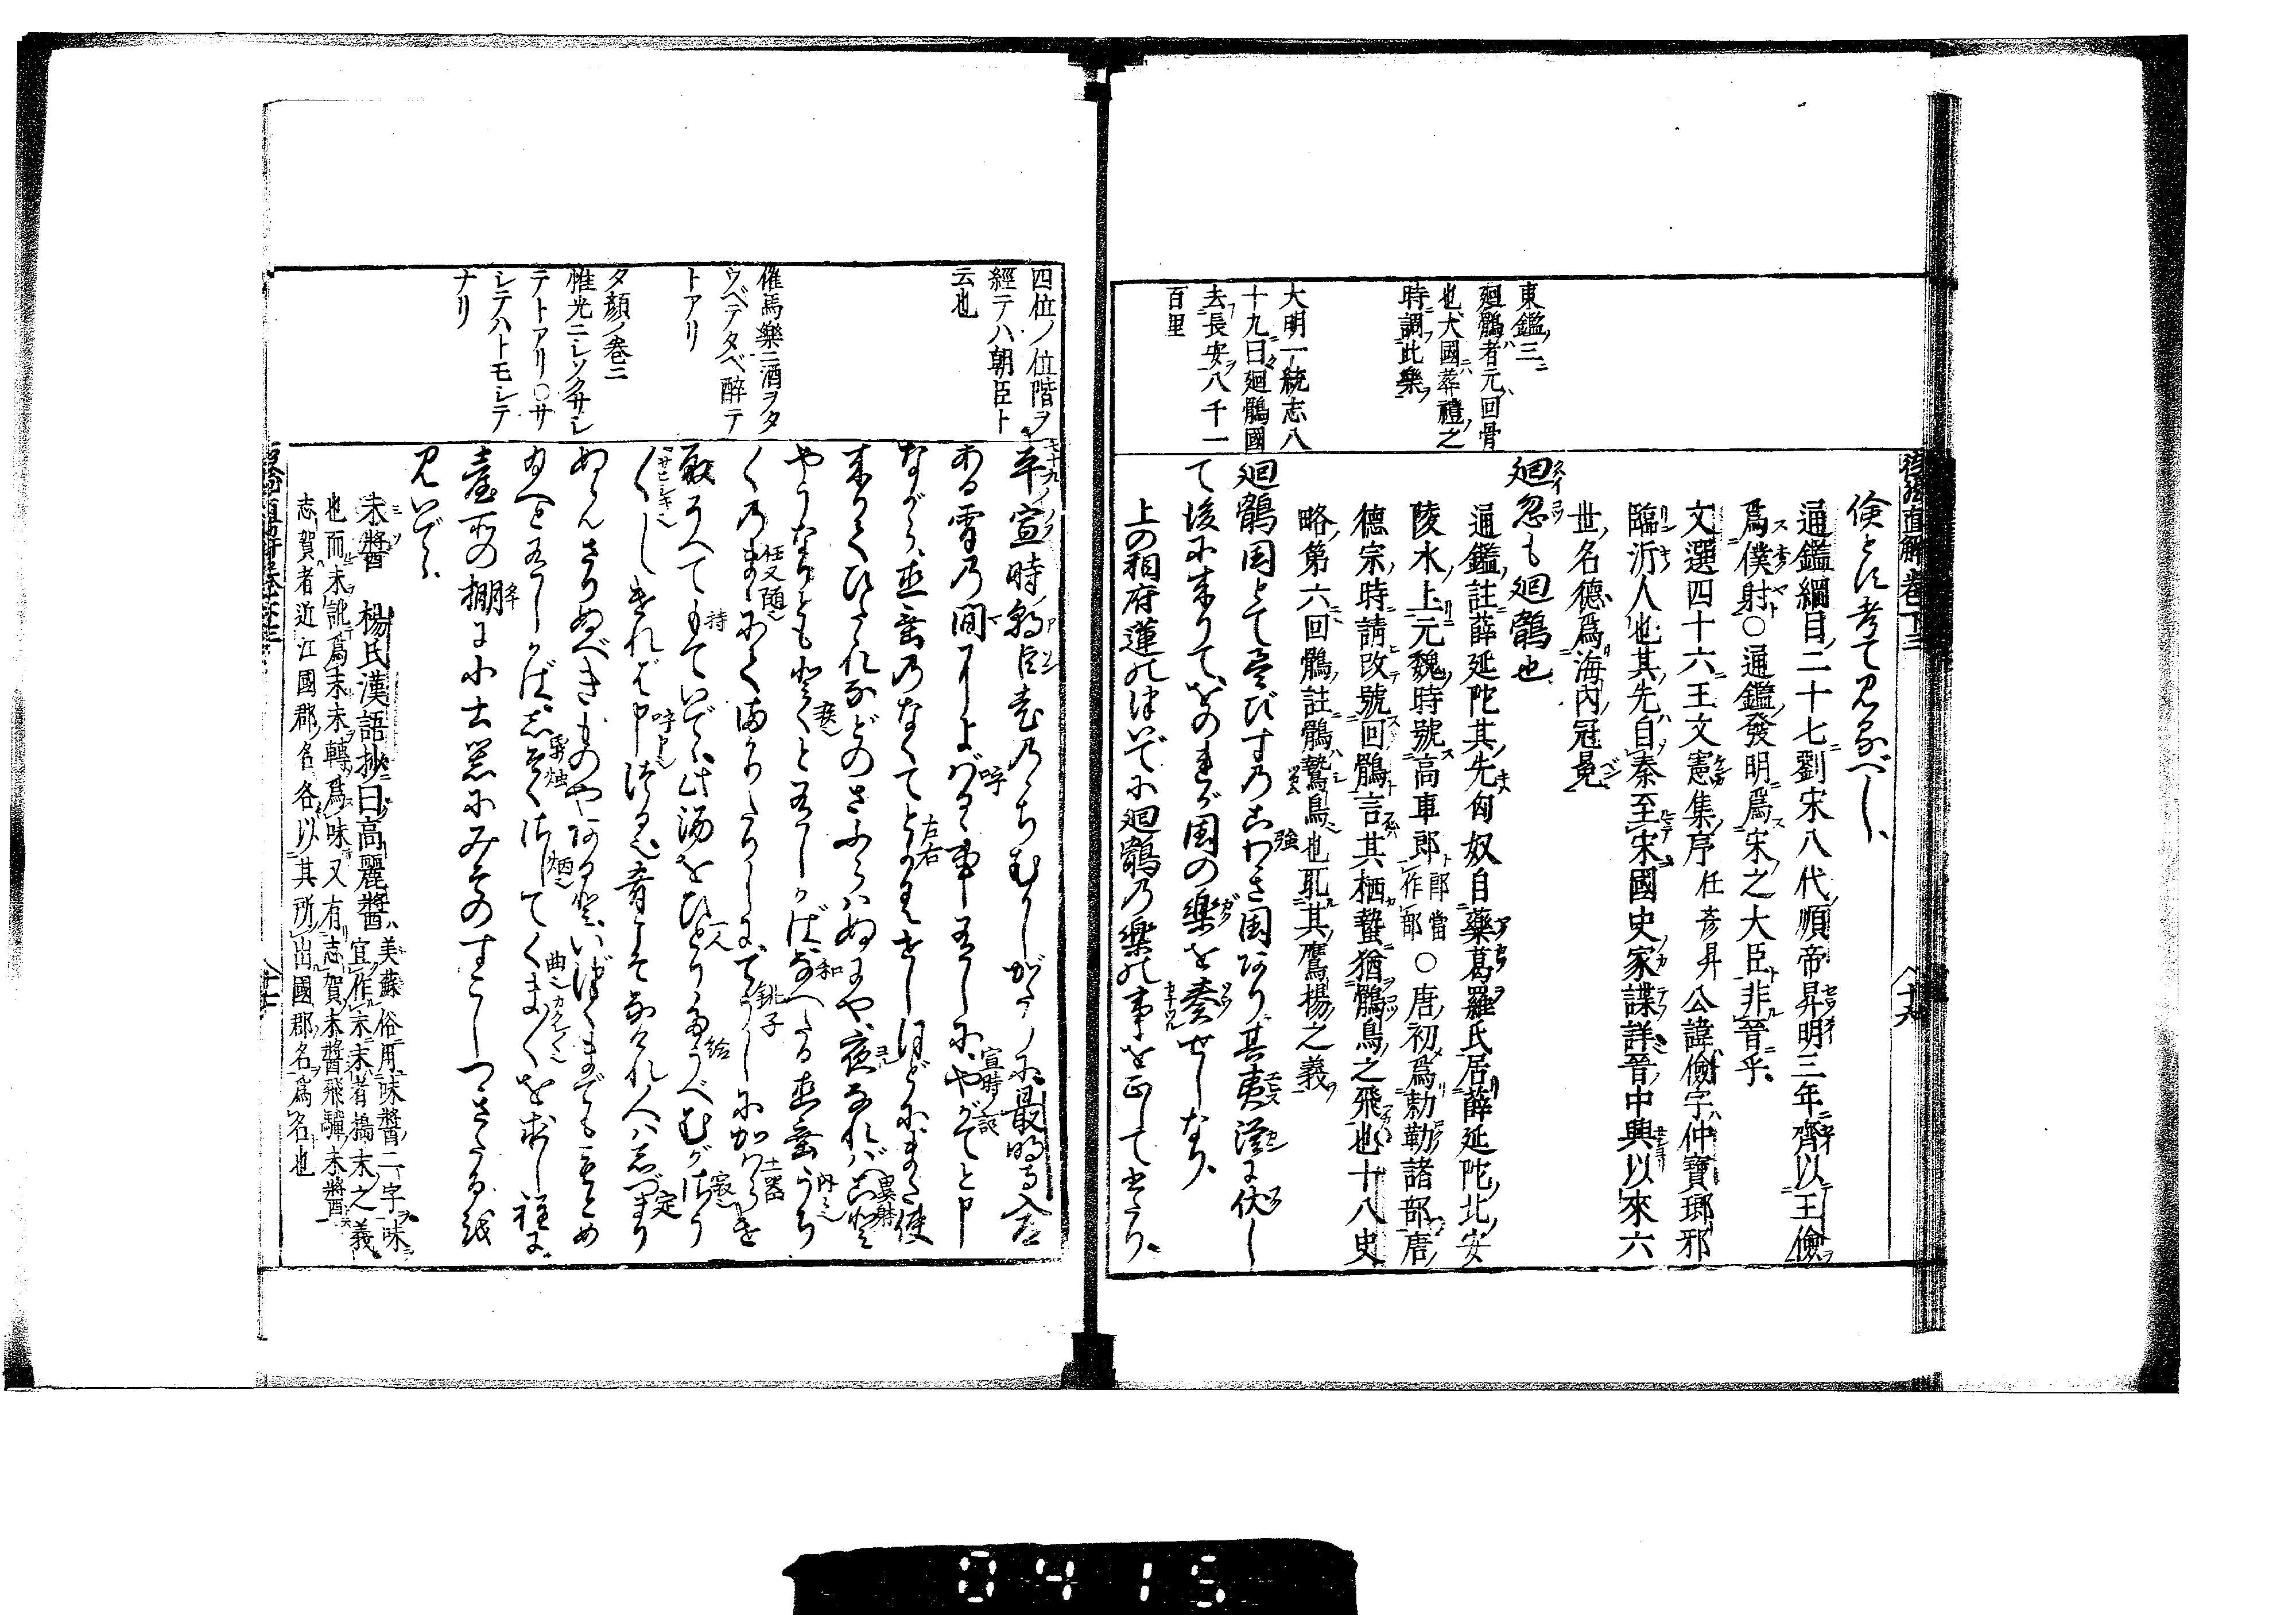 東鑑三
廻鶻者元回骨
也大國葬禮之
時調此樂
大明一統志八
十九曰廻鶻國
去長安八千一
百里
徒然直解卷下三
儉とす考て見るべし
通鑑綱目二十七劉宋八代順帝昇明三年齊以王儉
爲僕射○通鑑發明爲宋之大臣非晉乎
文選四十六王文憲集序 任彥昇 公諱儉字仲寶瑯邪
臨沂人也其先自秦至宋國史家諜詳晉中興以來六
世名德爲海內冠冕
廻忽も廻鶻也
通鑑註薛延陀其先匈奴自藥葛羅氏居薛延陀北安
陵水上元魏時號高車郎 郎當作部 ○唐初爲勅勒諸部唐
德宗時請改號回鶻言其栖蟄猶鶻鳥之飛也十八史
略第六回鶻註鶻鷙鳥也乱其鷹楊之義
廻鶻国とてゑびすのこわき国有り其夷漢に伏し
て後に来りてをのれが国の樂を奏せしなり
上の相府蓮のつゐでに廻鶻の樂の事を正して出たり
十六
四位ノ位階ヲ
經テハ朝臣ト
云也
催馬樂ニ酒ヲタ
ウベテタベ醉テ
トアリ
夕顔ノ巻ニ
惟光ニシソクサシ
テトアリ○サ
シテハトモシテ
ナリ
平宣時朝臣老のゝちむかしがたりに最明寺入道
ある宵の間によばるゝ事有しにやがてと申
ながら直垂のなくてとかくせしほどにまた使
来りてひたゝれなどのさふらはぬにや夜なればこと
やうなりともとくと有しかばなへたる直垂うち
くのまゝにてまかりたりしにてうしにかはらけ
取そへてもていでゝ此酒をひとりたうべむがさう
〲しければ申つる也肴こそなけれ人はしづまり
ぬらんさりぬべきものやあるといづくまでももとめ
給へと有しかばしそくさしてくま〲を求し程に
臺所の棚に小土器にみそのすこしつきたるを
見いでゝ
未醬　楊氏漢語抄曰高麗醬 美蘇俗用味醬二字味
宜作末末者搗末之義
也而末訛爲未未轉爲味又有志賀末醬飛驒末醬
志賀者近江國郡名各以其所出國郡名爲名也
十七
0415